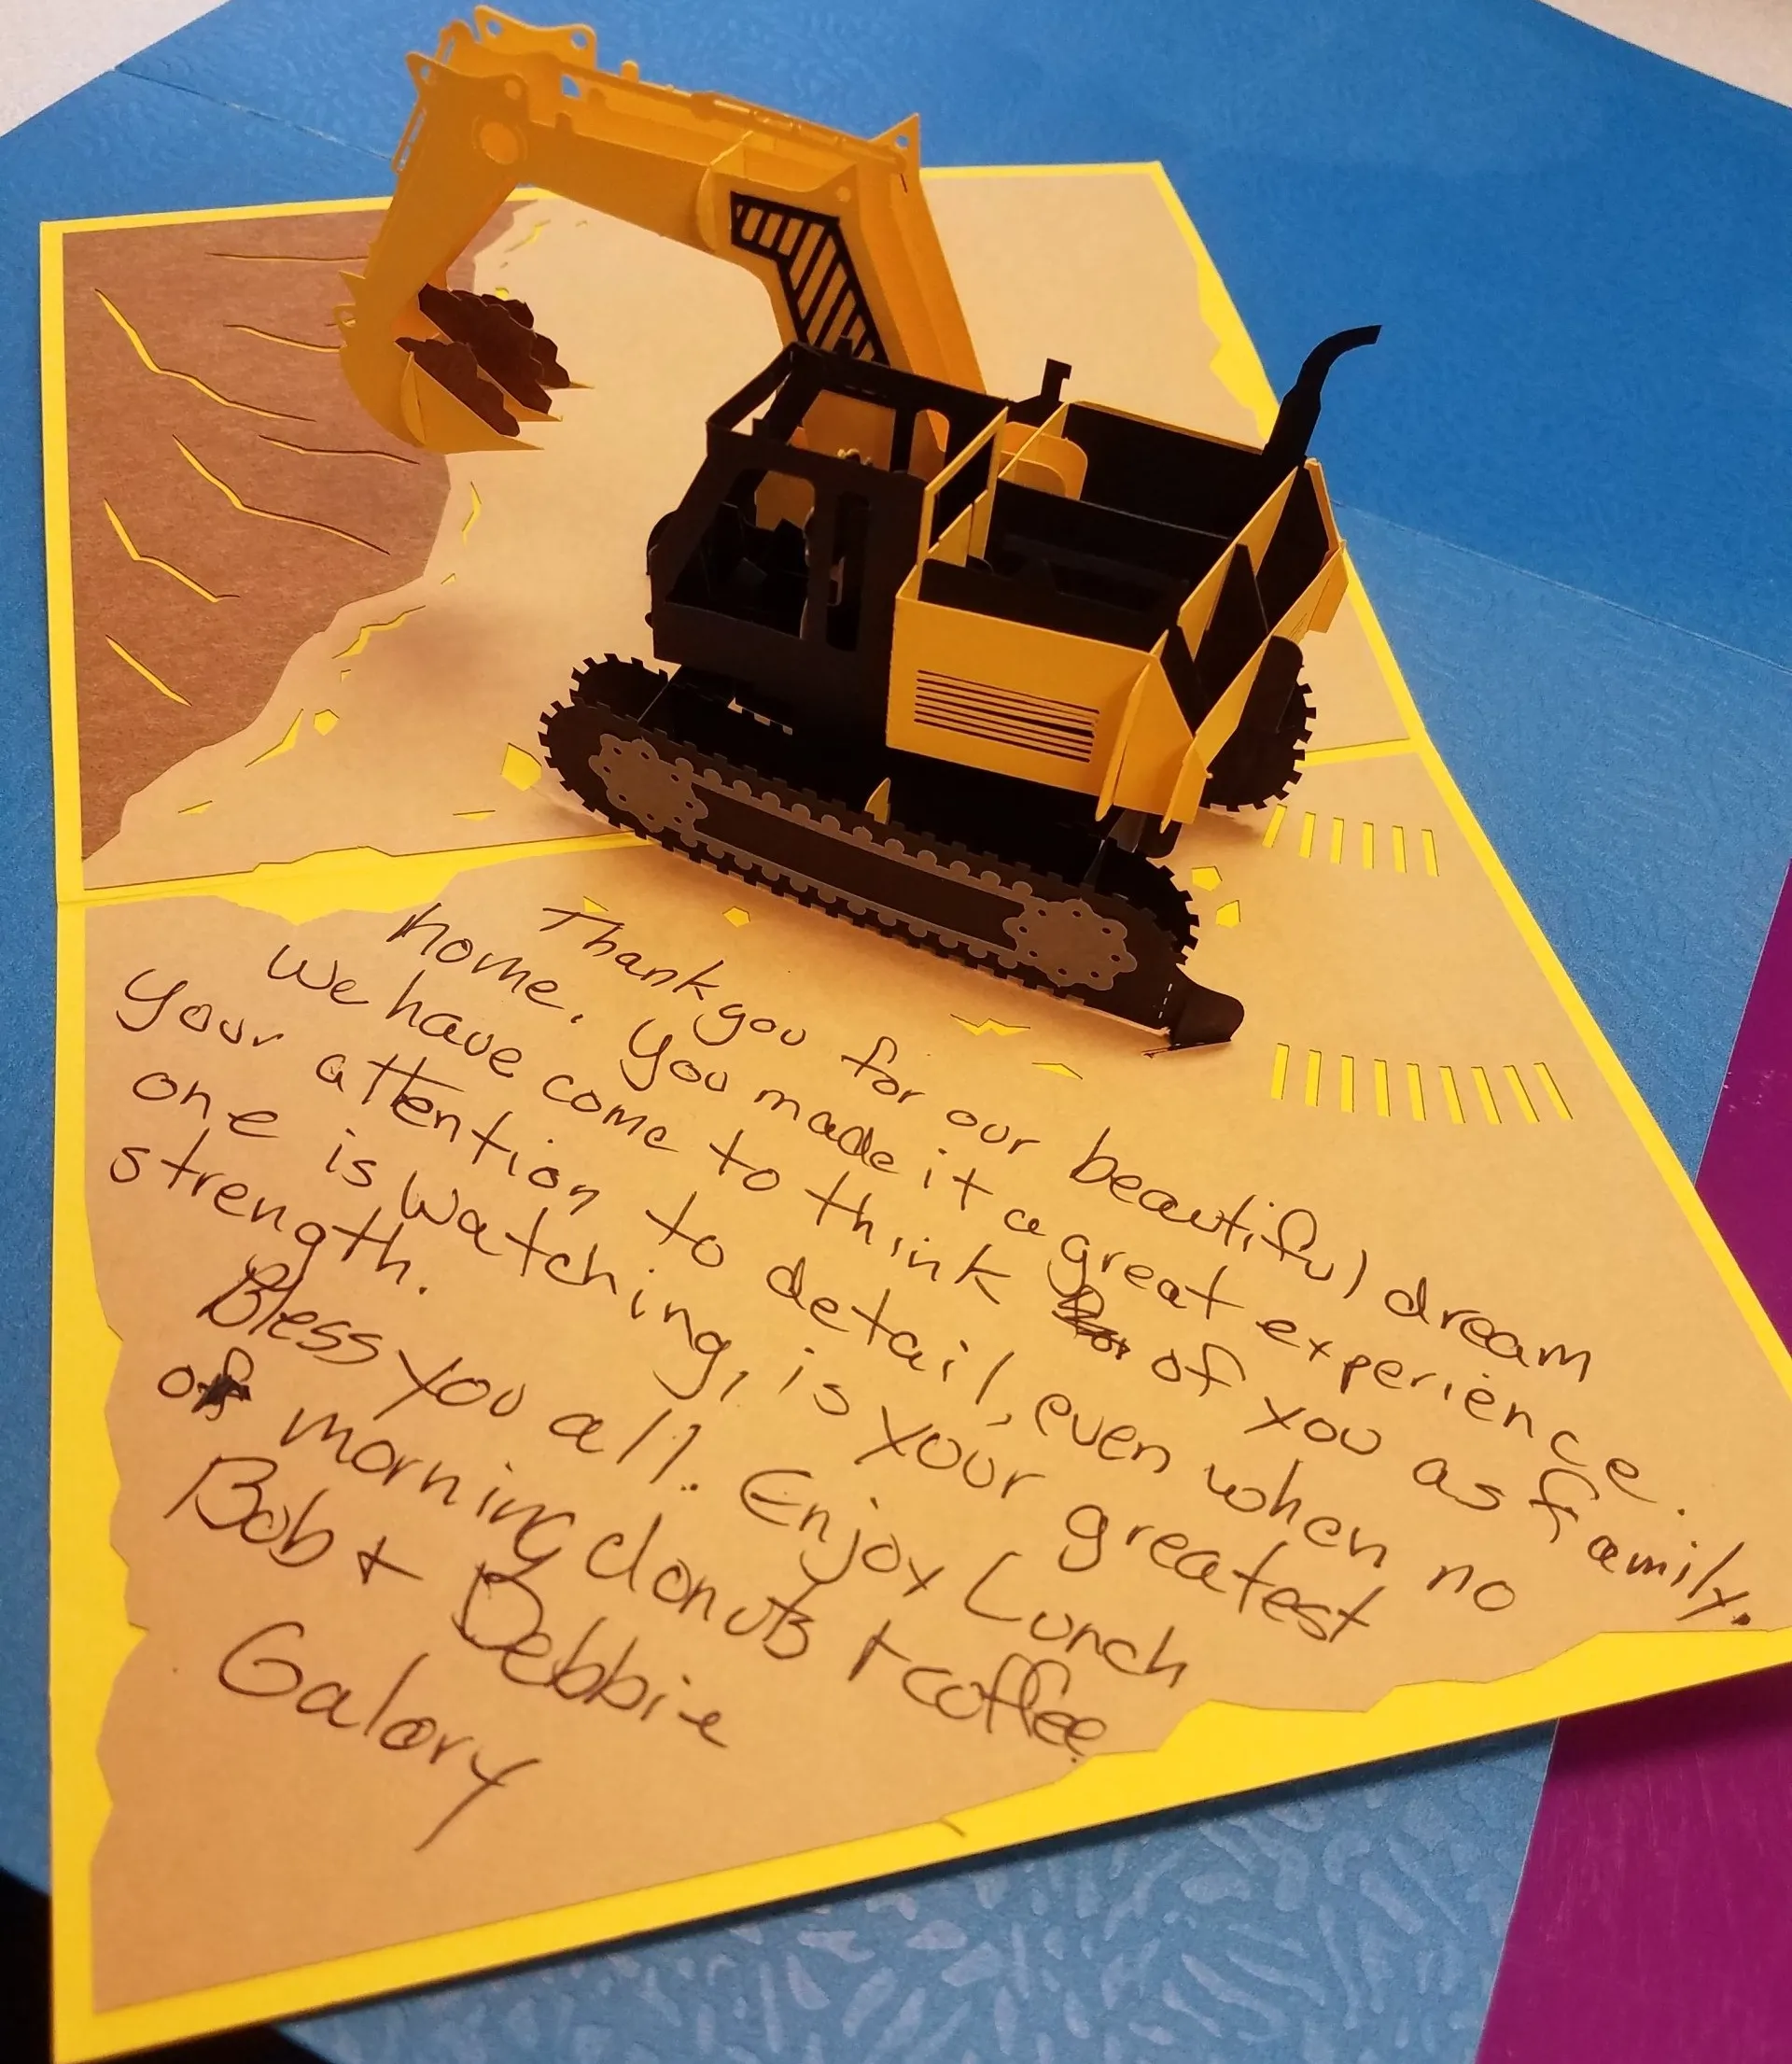 Thank you for our beautiful dream
home. You made it a great experience.
We have come to think of you as family.
Your attention to detail, even when no
one is watching, is your greatest
strength.
Bless you all. Enjoy Lunch
or morning donuts + coffee
Bob + Debbie
Galory